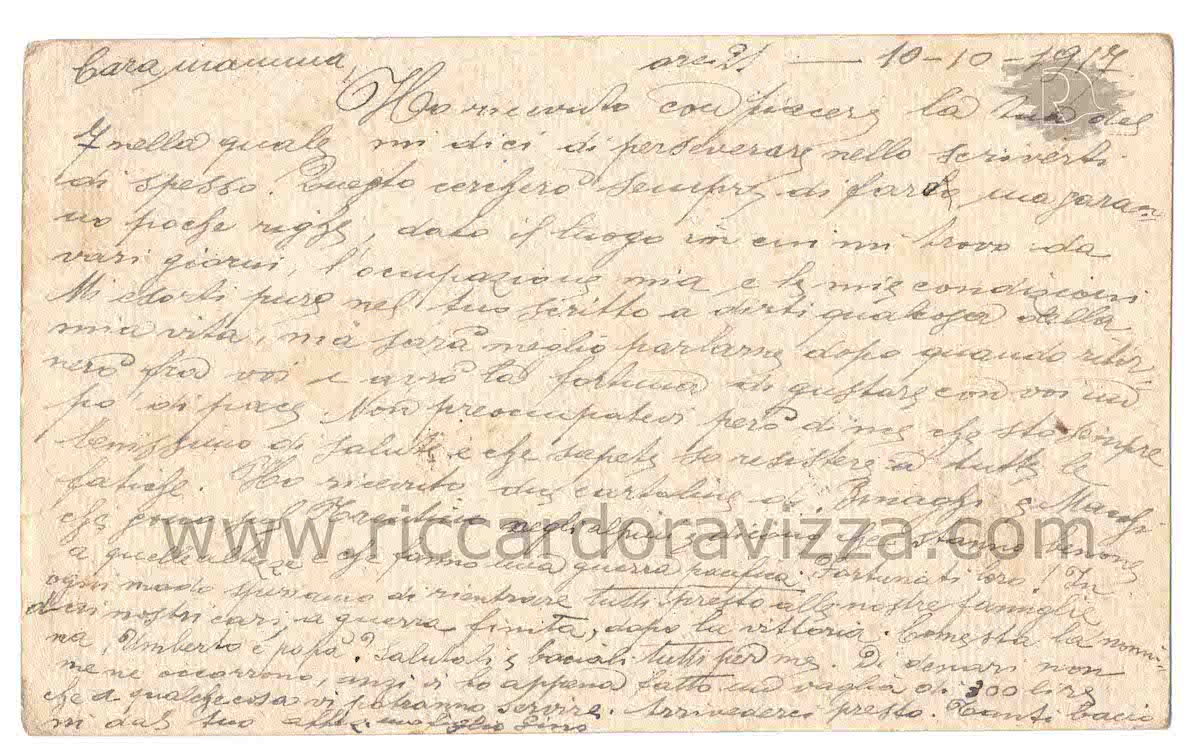 Cara mamma, ore 21 — 10-10-1917
Ho ricevuto con piacere la tua del
7 nella quale mi dici di perseverare nello scriverti
di spesso. Questo cercherò sempre di farlo, ma saran
no poche righe, dato il luogo in cui mi trovo da
vari giorni, l'occupazione mia e le mie condizioni
Mi esorti pure nel tuo scritto a dirti qualcosa della
mia vita, ma sarà meglio parlarne dopo quando ritor-
nerò fra voi e avrò la fortuna di gustare con voi un
po' di pace. Non preoccupatevi però di me che sto sempre
benissimo di salute e che sapete so resistere a tutte le
fatiche. Ho ricevuto due cartoline di Binaghi e Macchi
che sono nel Trentino negli alpini e dicono che stanno benone
a quelle altezze e che fanno una guerra pacifica. Fortunati loro! In
ogni modo speriamo di rientrare tutti presto alle nostre famiglie
dai nostri cari, a guerra finita, dopo la vittoria. Come sta la nonni-
na, Umberto e papà? Salutali e baciali tutti per me. Di denari non
me ne occorrono, anzi vi ho appena fatto un vaglia di 300 lire
che a qualche cosa vi potranno servire. Arrivederci presto. Tanti baci
dal tuo aff. figlio Gino
www.riccardoravizza.com